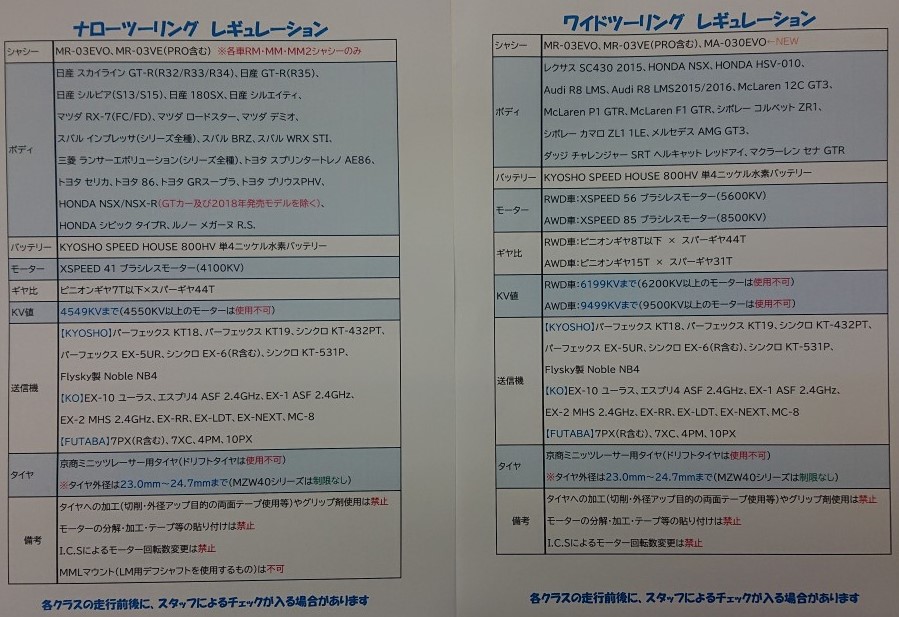 ナローツーリング レギュレーション
シャシー
MR-03EVO、MR-03VE(PRO含む) ※各車RM・MM・MM2シャシーのみ
ボディ
日産 スカイライン GT-R(R32/R33/R34)、日産 GT-R(R35)、
日産 シルビア(S13/S15)、日産 180SX、日産 シルエイティ、
マツダ RX-7(FC/FD)、マツダ ロードスター、マツダ デミオ、
スバル インプレッサ(シリーズ全種)、スバル BRZ、スバル WRX STI、
三菱 ランサーエボリューション(シリーズ全種)、トヨタ スプリンタートレノ AE86、
トヨタ セリカ、トヨタ 86、トヨタ GRスープラ、トヨタ プリウスPHV、
HONDA NSX/NSX-R(GTカー及び2018年発売モデルを除く)、
HONDA シビック タイプR、ルノー メガーヌ R.S、
バッテリー
KYOSHO SPEED HOUSE 800HV 単4ニッケル水素バッテリー
モーター
XSPEED 41 ブラシレスモーター(4100KV)
ギヤ比
ピニオンギヤ7T以下×スパーギヤ44T
KV値
4549KVまで(4550KV以上のモーターは使用不可)
送信機
【KYOSHO】パーフェックス KT18、パーフェックス KT19、シンクロ KT-432PT、
パーフェックス EX-5UR、シンクロ EX-6(R含む)、シンクロ KT-531P、
Flysky製 Noble NB4
【KO】EX-10 ユーラス、エスプリ4 ASF 2.4GHz、EX-1 ASF 2.4GHz、
EX-2 MHS 2.4GHz、EX-RR、EX-LDT、EX-NEXT、MC-8
【FUTABA】7PX(R含む)、7XC、4PM、10PX
タイヤ
京商ミニッツレーサー用タイヤ(ドリフトタイヤは使用不可)
※タイヤ外径は23.0mm〜24.7mmまで(MZW40シリーズは制限なし)
備考
タイヤへの加工(切削・外径アップ目的の両面テープ使用等)やグリップ剤使用は禁止
モーターの分解・加工・テープ等の貼り付けは禁止
I.C.Sによるモーター回転数変更は禁止
MMLマウント(LM用デフシャフトを使用するもの)は不可
各クラスの走行前後に、スタッフによるチェックが入る場合があります
ワイドツーリング レギュレーション
シャシー
MR-03EVO、MR-03VE(PRO含む)、MA-030EVO←NEW
ボディ
レクサス SC430 2015、HONDA NSX、HONDA HSV-010、
Audi R8 LMS、Audi R8 LMS2015/2016、McLaren 12C GT3、
McLaren P1 GTR、McLaren F1 GTR、シボレー コルベット ZR1、
シボレー カマロ ZL1 1LE、メルセデス AMG GT3、
ダッジ チャレンジャー SRT ヘルキャット レッドアイ、マクラーレン セナ GTR
バッテリー
KYOSHO SPEED HOUSE 800HV 単4ニッケル水素バッテリー
モーター
RWD車：XSPEED 56 ブラシレスモーター(5600KV)
AWD車：XSPEED 85 ブラシレスモーター(8500KV)
ギヤ比
RWD車：ピニオンギヤ8T以下 × スパーギヤ44T
AWD車：ピニオンギヤ15T × スパーギヤ31T
KV値
RWD車：6199KVまで(6200KV以上のモーターは使用不可)
AWD車：9499KVまで(9500KV以上のモーターは使用不可)
送信機
【KYOSHO】パーフェックス KT18、パーフェックス KT19、シンクロ KT-432PT、
パーフェックス EX-5UR、シンクロ EX-6(R含む)、シンクロ KT-531P、
Flysky製 Noble NB4
【KO】EX-10 ユーラス、エスプリ4 ASF 2.4GHz、EX-1 ASF 2.4GHz、
EX-2 MHS 2.4GHz、EX-RR、EX-LDT、EX-NEXT、MC-8
【FUTABA】7PX(R含む)、7XC、4PM、10PX
タイヤ
京商ミニッツレーサー用タイヤ(ドリフトタイヤは使用不可)
※タイヤ外径は23.0mm〜24.7mmまで(MZW40シリーズは制限なし)
備考
タイヤへの加工(切削・外径アップ目的の両面テープ使用等)やグリップ剤使用は禁止
モーターの分解・加工・テープ等の貼り付けは禁止
I.C.Sによるモーター回転数変更は禁止
各クラスの走行前後に、スタッフによるチェックが入る場合があります